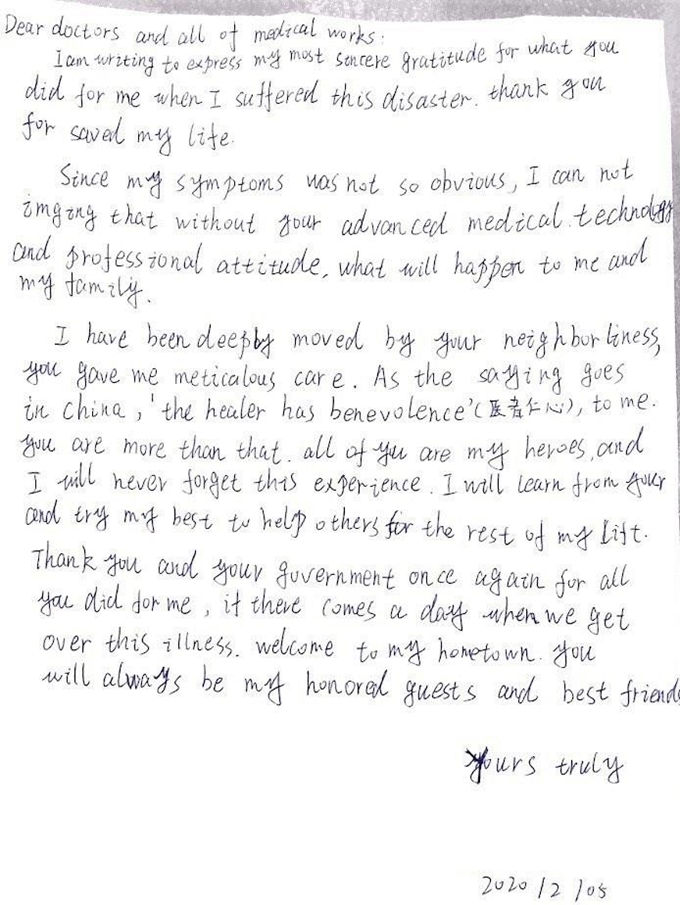 Dear doctors and all of medical works:
I am writing to express my most sincere gratitude for what you
did for me when I suffered this disaster. thank you
for saved my life.
Since my symptoms was not so obvious, I can not
imging that without your advanced medical technology
and professional attitude, what will happen to me and
my family.
I have been deeply moved by your neighborliness,
you gave me meticalous care. As the saying goes
in China, 'the healer has benevolence'(医者仁心), to me.
you are more than that. all of you are my heroes, and
I will never forget this experience. I will learn from your
and try my best to help others for the rest of my lift.
Thank you and your government once again for all
you did for me, if there comes a day when we get
over this illness. welcome to my hometown. you
will always be my honored guests and best friends
yours truly
2020/2/05